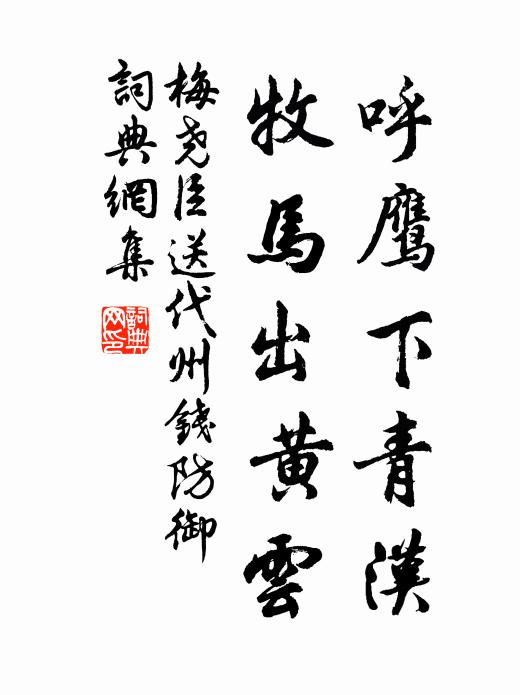 呼鹰下青漢
牧馬出黄雲
梅尧臣送代州錢防御
詞典網集
詞典网印